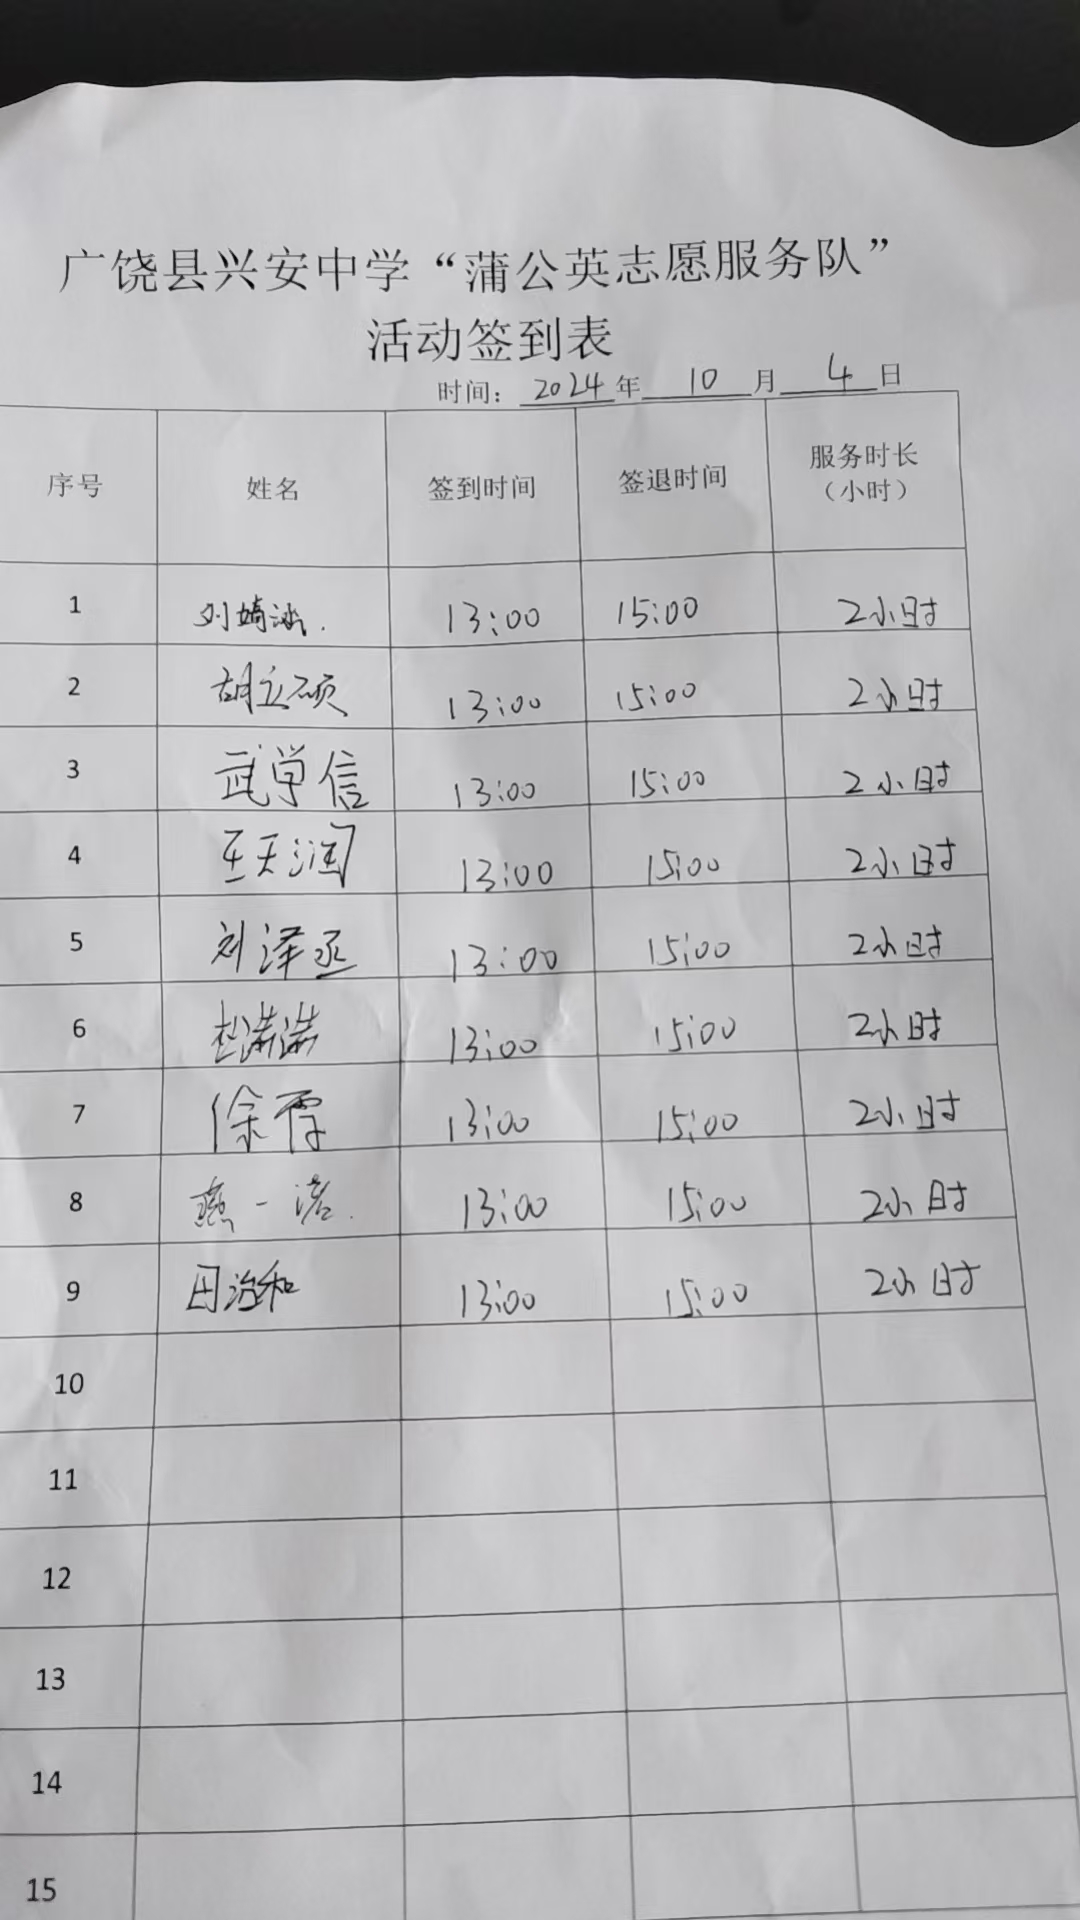 广饶县兴安中学“蒲公英志愿服务队”
活动签到表
时间：2024年 10 月 4 日
序号 姓名 签到时间 签退时间 服务时长（小时）
1 13:00 15:00 2小时
2 胡立硕 13:00 15:00 2小时
3 武学信 13:00 15:00 2小时
4 王天润 13:00 15:00 2小时
5 刘泽丞 13:00 15:00 2小时
6 杜满满 13:00 15:00 2小时
7 徐霈 13:00 15:00 2小时
8 燕一诺 13:00 15:00 2小时
9 田治和 13:00 15:00 2小时
10
11
12
13
14
15